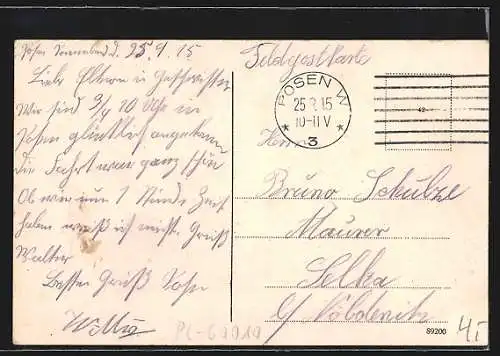 Posen Sonnabend d. 25.9.15
Liebe Eltern u Geschwister
Wir sind 3/4 10 Uhr in
Posen glücklich angekommen
die Fahrt war ganz schön
Ob wir nun 1 Stunde Zeit
haben weiß ich nicht. Gruß
Walter
Besten Gruß Sohn
Feldpostkarte
POSEN W
25.9.15
10-11 V
* 3 *
Herrn
Bruno Schulze
Maurer
Selka
b/ Nöbdenitz
89200
4,-
PL-60010